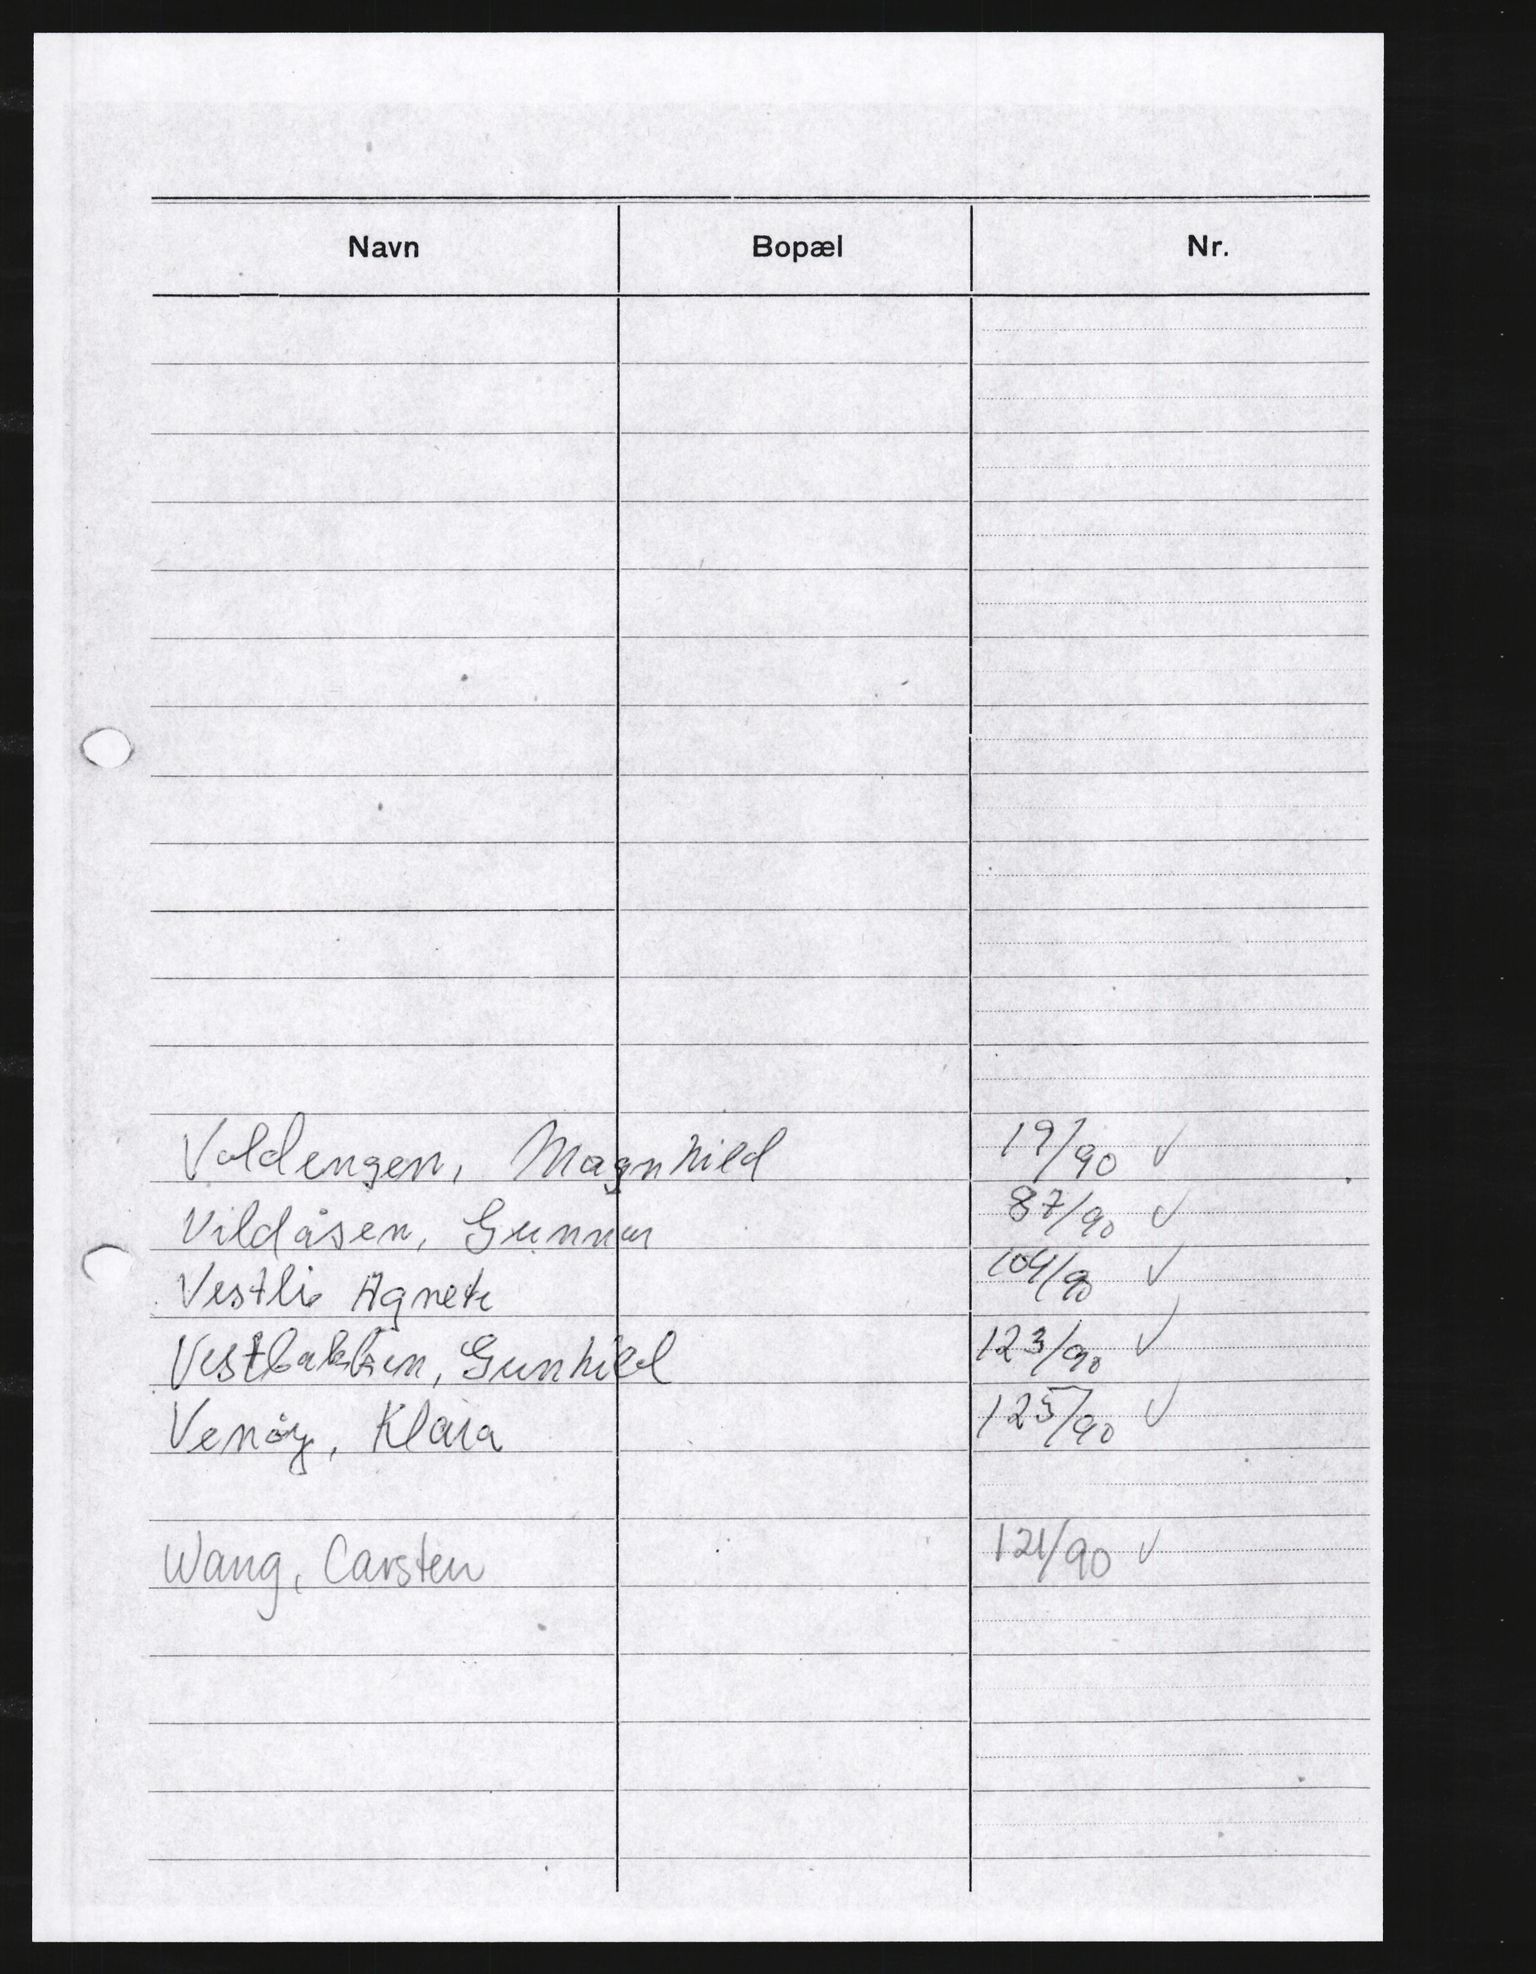 Navn Bopæl Nr.
Valdengen, Magnhild 19/90 ✓
Vildåsen, Gunnar 87/90 ✓
Vestli Agnete 104/90 ✓
Vestbakken, Gunhild 123/90 ✓
Venøy, Klara 125/90 ✓
Wang, Carsten 121/90 ✓